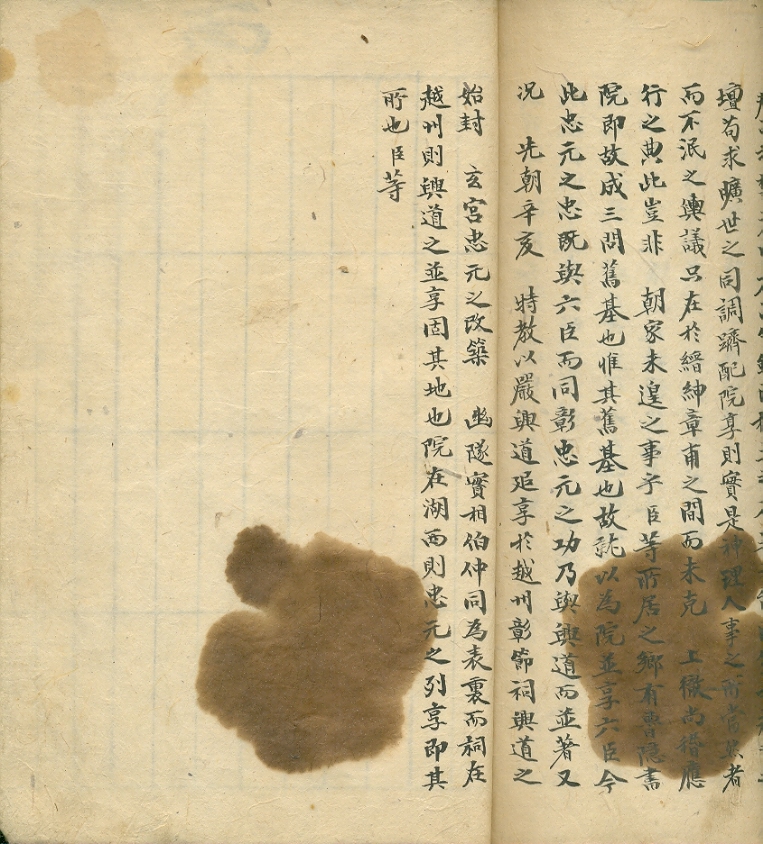 壇苟求曠世之同調躋配院享則實是神理人事之所當然者
而不泯之輿議只在於縉紳章甫之間而未克 上徹尚稽應
行之典此豈非 朝家未遑之事乎臣等所居之鄉有魯隱書
院即故成三問舊基也惟其舊基也故就以為院並享六臣今
此忠元之忠既與六臣而同彰忠元之功乃與興道而並著又
況 先朝辛亥 特教以嚴興道追享於越州彰節祠興道之
始封 玄宮忠元之改築 幽隧實相伯仲同為表裏而祠在
越州則興道之並享固其地也院在湖西則忠元之列享即其
所也臣等